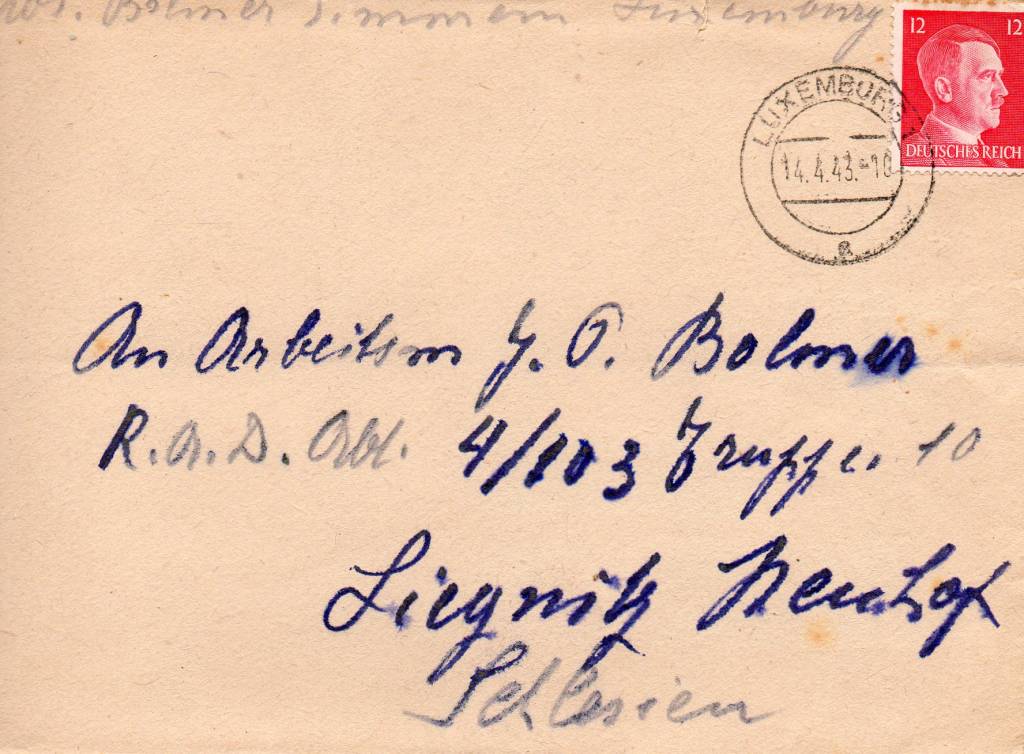 Bolmer Simmern Luxemburg
12 12
DEUTSCHES REICH
LUXEMBURG 1
14.4.43.-10
a
An Arbeitsm J. P. Bolmer
R.A.D. Abt. 4/103 Truppe. 10
Liegnitz Neuhof
Schlesien